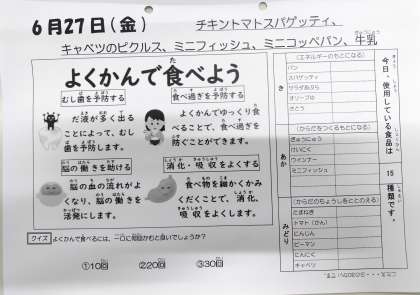 6月27日(金)
チキントマトスパゲッティ、
キャベツのピクルス、ミニフィッシュ、ミニコッペパン、牛乳
よくかんで食べよう
むし歯を予防する
だ液が多く出る
ことによって、むし
歯を予防します。
食べ過ぎを予防する
よくかんでゆっくり食
べることで、食べ過ぎを
防ぐことができます。
脳の働きを助ける
脳の血の流れがよ
くなり、脳の働きを
活発にします。
消化・吸収をよくする
食べ物を細かくかみ
くだくことで、消化、
吸収をよくします。
クイズ よくかんで食べるには、一口に何回かむと良いでしょうか?
①10回 ②20回 ③30回
今日、使用している食品は
15
種類です。
き
(エネルギーのもとになる)
パン
スパゲッティ
サラダあぶら
オリーブ油
さとう
あか
(からだをつくるもとになる)
ぎゅうにゅう
けいにく
ウインナー
ミニフィッシュ
みどり
(からだのちょうしをととのえる)
たまねぎ
トマト(かん)
にんじん
ピーマン
にんにく
キャベツ